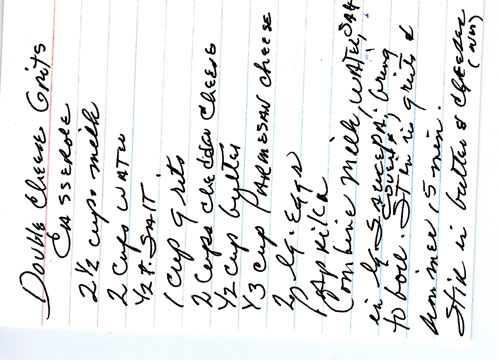 Double Cheese Grits
Casserole
2 1/2 cups milk
2 cups water
1/2 t. salt
1 cup grits
2 cups cheddar cheese
1/2 cup butter
1/3 cup Parmesan cheese
2 lg. eggs
Paprika
Combine milk, water, salt
in lg saucepan, bring
to boil. Stir in grits &
simmer 15 min.
Stir in butter & cheeses